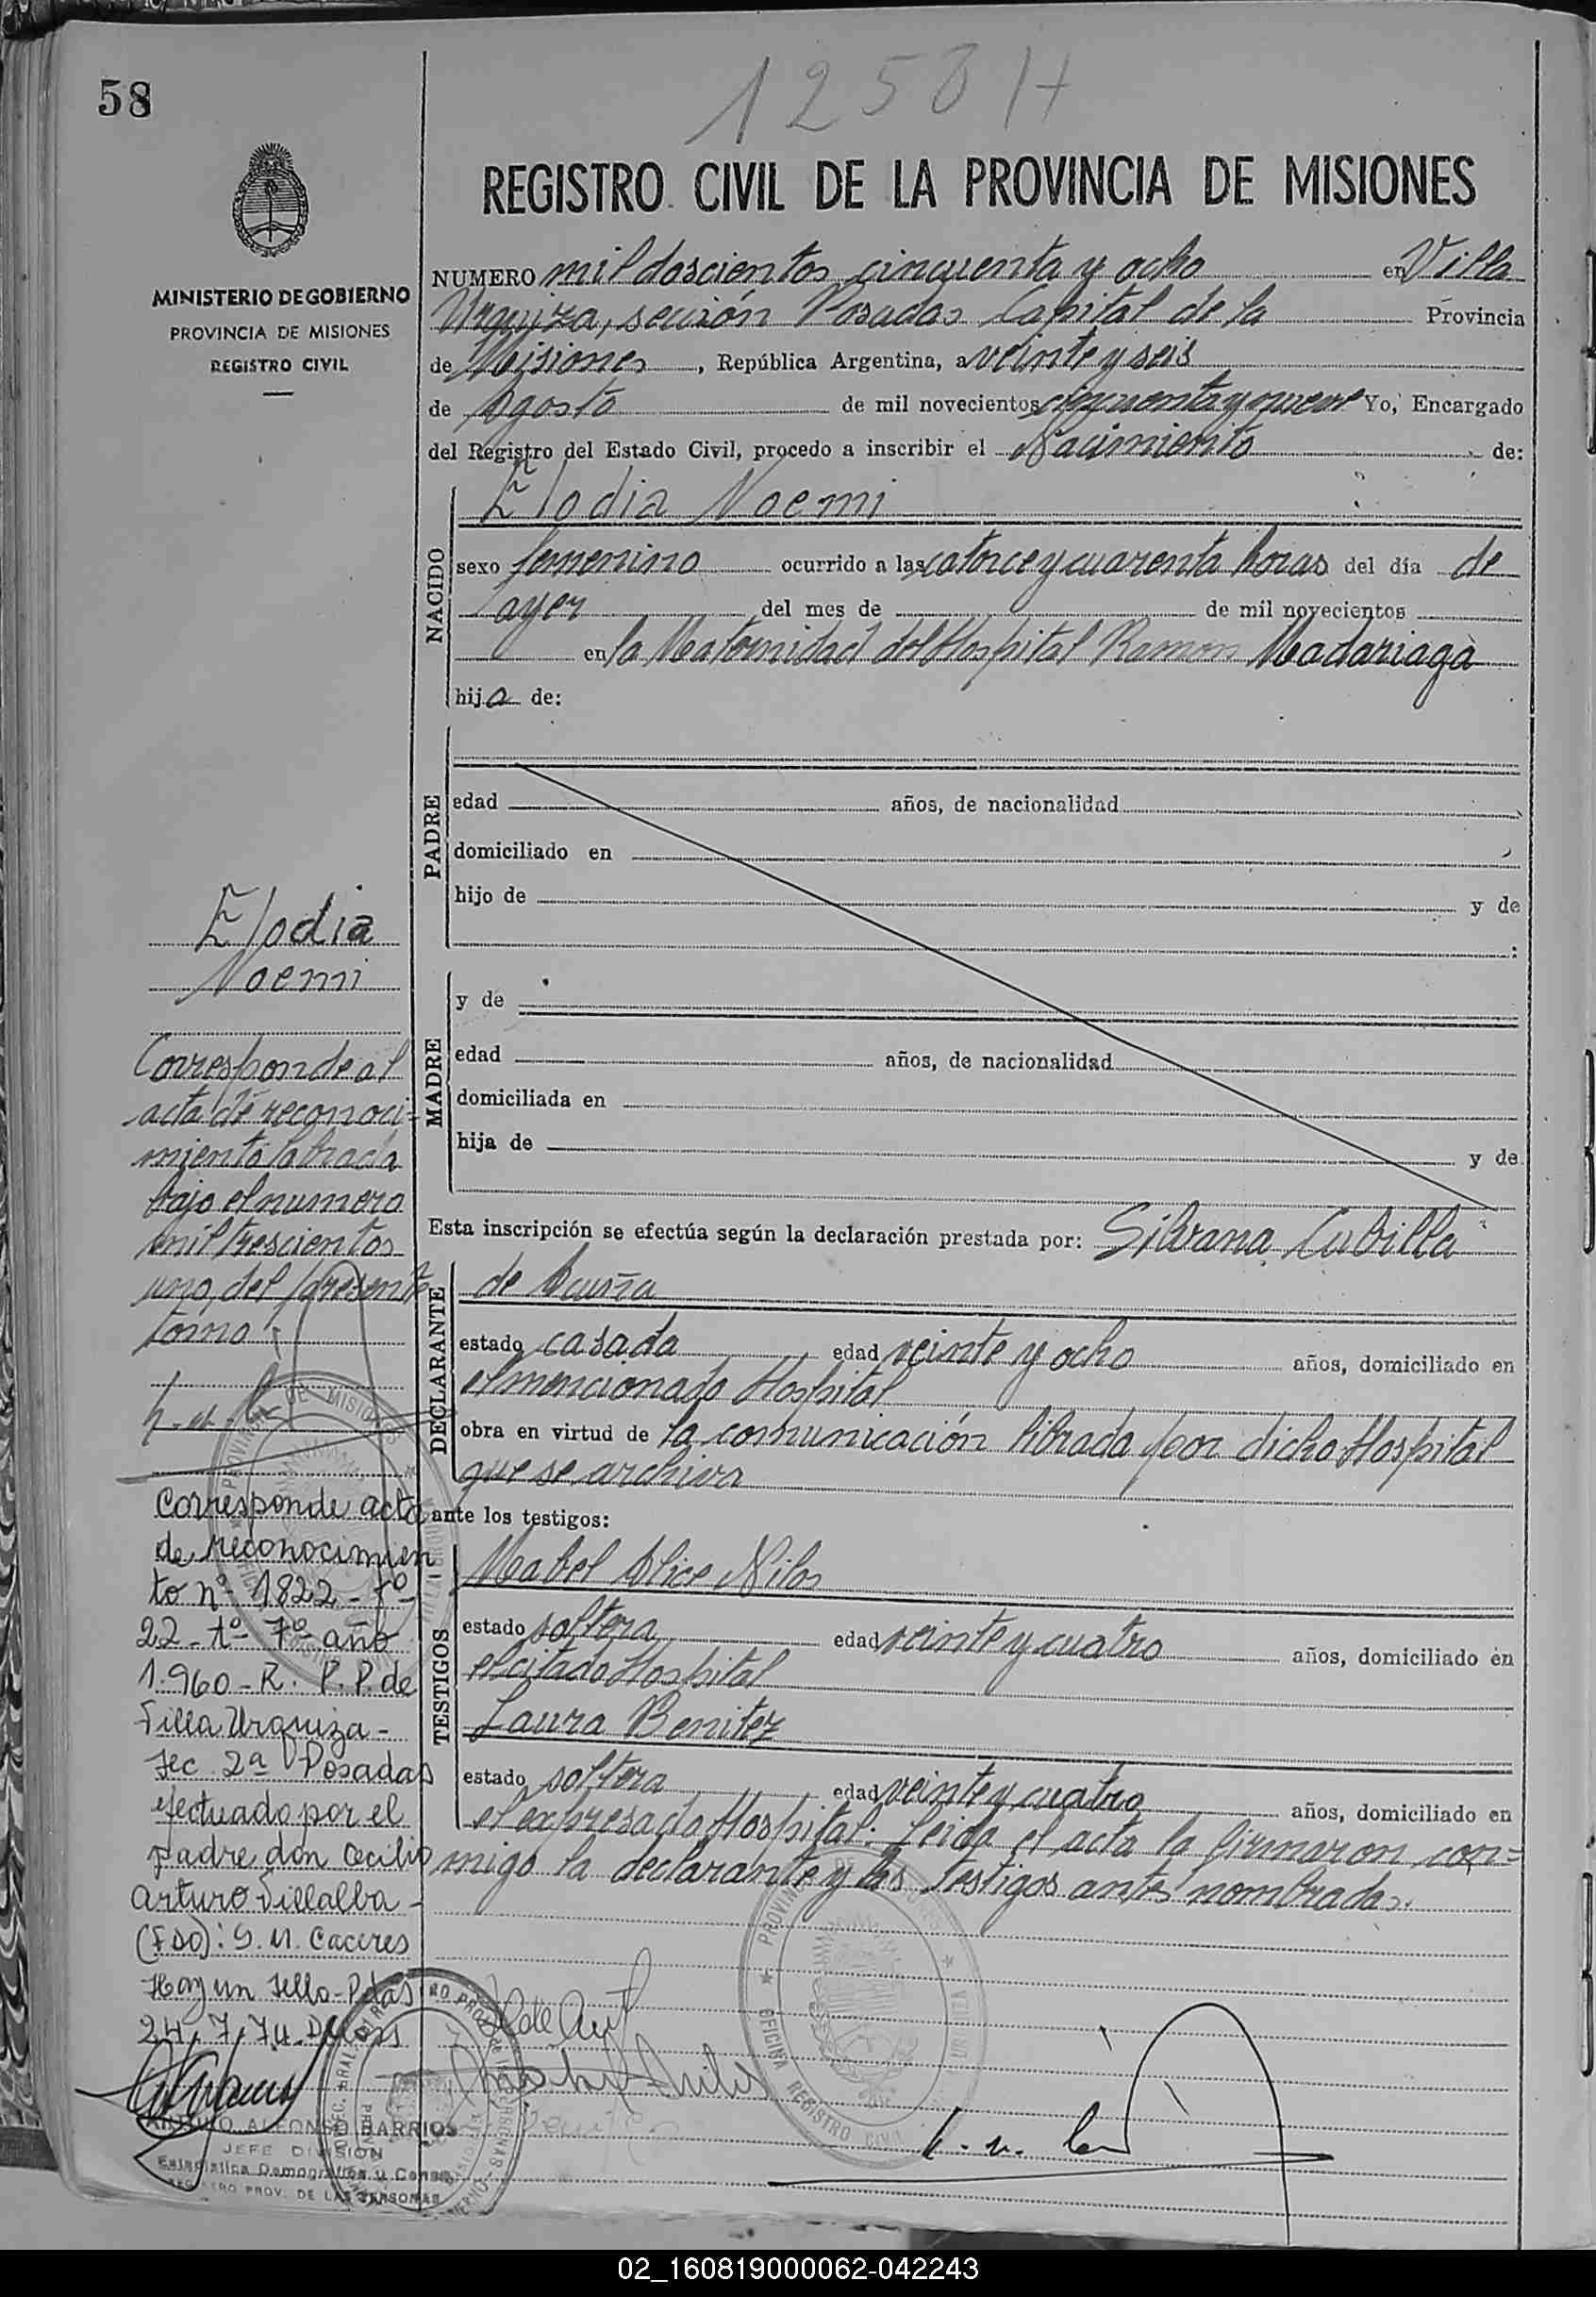 58
1258 H
REGISTRO CIVIL DE LA PROVINCIA DE MISIONES
MINISTERIO DE GOBIERNO
PROVINCIA DE MISIONES
REGISTRO CIVIL
NUMERO mil doscientos cincuenta y ocho en Villa
Urquiza, sección Posadas Capital de la Provincia
de Misiones, República Argentina, a veinte y seis
de Agosto de mil novecientos cincuenta y nueve Yo, Encargado
del Registro del Estado Civil, procedo a inscribir el Nacimiento de:
NACIDO
Elodia Noemi
sexo femenino ocurrido a las catorce y cuarenta horas del día de
ayer del mes de de mil novecientos
en la Maternidad del Hospital Ramon Madariaga
hija de:
PADRE
edad años, de nacionalidad
domiciliado en
hijo de y de
:
MADRE
y de
edad años, de nacionalidad
domiciliada en
hija de y de
Esta inscripción se efectúa según la declaración prestada por: Silvana Cubilla
DECLARANTE
de Acuña
estado casada edad veinte y ocho años, domiciliado en
el mencionado Hospital
obra en virtud de la comunicación librada por dicho Hospital
que se archiva
ante los testigos:
TESTIGOS
Mabel Alice Nilos
estado soltera edad veinte y cuatro años, domiciliado en
el citado Hospital
Laura Benitez
estado soltera edad veinte y cuatro años, domiciliado en
el expresado Hospital. Leida el acta la firmaron con=
migo la declarante y las testigos antes nombradas.
Elodia
Noemi
Corresponde al
acta de reconoci-
miento labrada
bajo el numero
mil trescientos
uno, del presente
tomo
Corresponde acta
de reconocimien
to nº 1822 - fº
22 - tº 7º año
1.960 - R. P. P. de
Villa Urquiza -
Sec 2ª Posadas
efectuado por el
Padre don Cecilio
Arturo Villalba -
(Fdo): S. M. Caceres
Hay un sello - Pdas
24, 7, 74.
ALFONSO BARRIOS
JEFE DIVISION
Estadistica Demografica y Cons
REGISTRO PROV. DE LAS PERSONAS
PROVINCIA DE MISIONES
OFICINA REGISTRO CIVIL
02_160819000062-042243